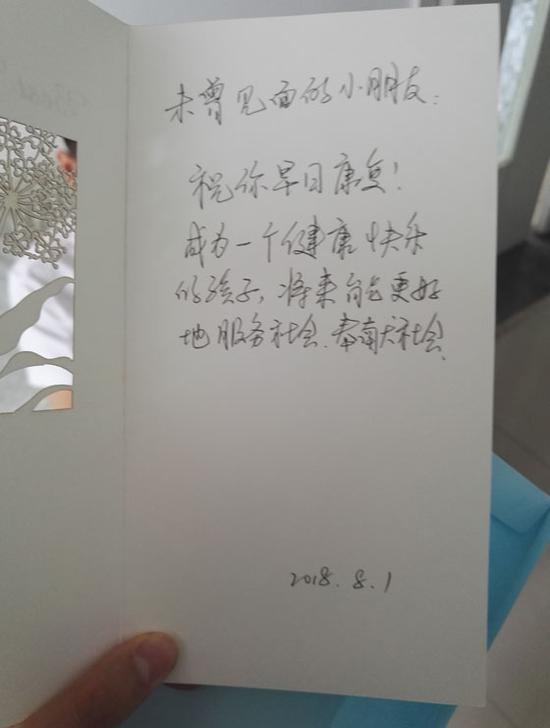 未曾见面的小朋友:
祝你早日康复!
成为一个健康快乐
的孩子,将来能更好
地服务社会.奉献社会.
2018.8.1